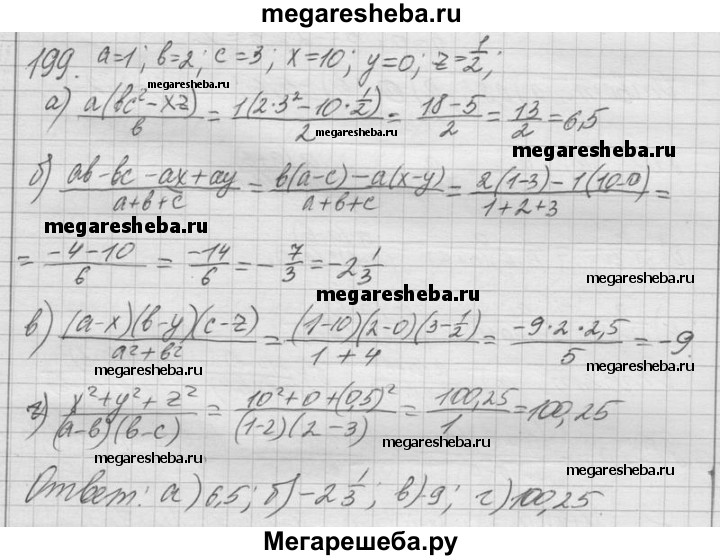 megaresheba.ru
199. a=1; b=2; c=3; x=10; y=0; z=1/2;
megaresheba.ru
а) a(bc²-xz)/b = 1(2·3²-10·1/2)/2 = (18-5)/2 = 13/2 = 6,5
megaresheba.ru
megaresheba.ru
б) (ab-bc-ax+ay)/(a+b+c) = (b(a-c)-a(x-y))/(a+b+c) = (2(1-3)-1(10-0))/(1+2+3) =
megaresheba.ru
megaresheba.ru
= (-4-10)/6 = -14/6 = -7/3 = -2 1/3
megaresheba.ru
megaresheba.ru
в) (a-x)(b-y)(c-z)/(a²+b²) = (1-10)(2-0)(3-1/2)/(1+4) = (-9·2·2,5)/5 = -9
megaresheba.ru
megaresheba.ru
г) (x²+y²+z²)/((a-b)(b-c)) = (10²+0+(0,5)²)/((1-2)(2-3)) = 100,25/1 = 100,25
megaresheba.ru
megaresheba.ru
Ответ: а) 6,5; б) -2 1/3; в) -9; г) 100,25.
megaresheba.ru
Мегарешеба.ру